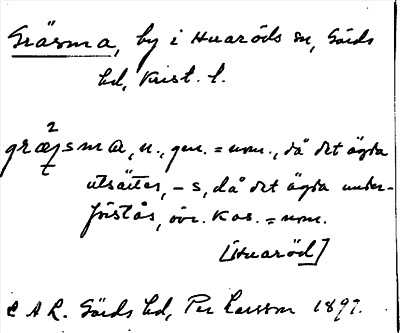 Gräsma, by i Huaröds sn, Gärds
hd, Krist. l.
græ²sma, n., gen. = nom., då det ägda
utsättes, -s, då det ägda under-
förstås, övr. kas. = nom.
[Huaröd]
C A L. Gärds hd, Per Larsson 1897.